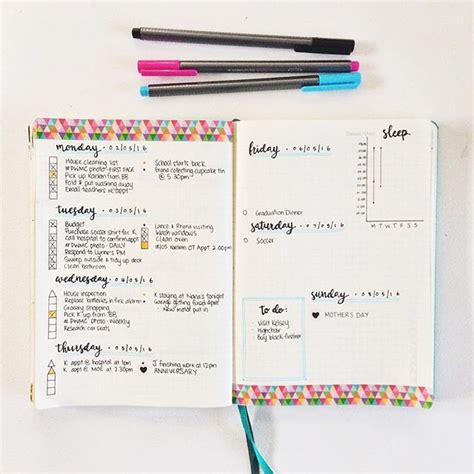 monday · 02/05/16
House cleaning list
#DWMC photo - FIRST PAGE
Pick up Kaelan from BB
Fold & put washing away
Email teachers
School starts back
Erana collecting cupcake tin
@ 5:30pm
tuesday · 03/05/16
Budget
Purchase soccer shirt for K
call hospital to confirm appt
#DWMC photo - DAILY
Respond to Lynne's PM
Sweep outside & tidy up deck
Clean bathroom
Lunch & Rhona visiting
Wash windows
Clean oven
Kaman OT Appt 2:00pm
wednesday · 04/05/16
House inspection
Replace batteries in fire alarms
Grocery shopping
Pick K up from BB
#DWMC photo - Weekly
Research car seats
K staying at Nana's tonight
Garage getting fixed 4pm
New motor put in
thursday · 05/05/16
K appt @ hospital at 1pm
K appt @ MOE at 2:30pm
J finishing work at 12pm
ANNIVERSARY
friday · 06/05/16
Graduation Dinner
saturday · 07/05/16
Soccer
sleep
M T W T F S S
to do:
Visit Kelsey
Highchair
Buy black fineliner
sunday · 08/05/16
MOTHER'S DAY